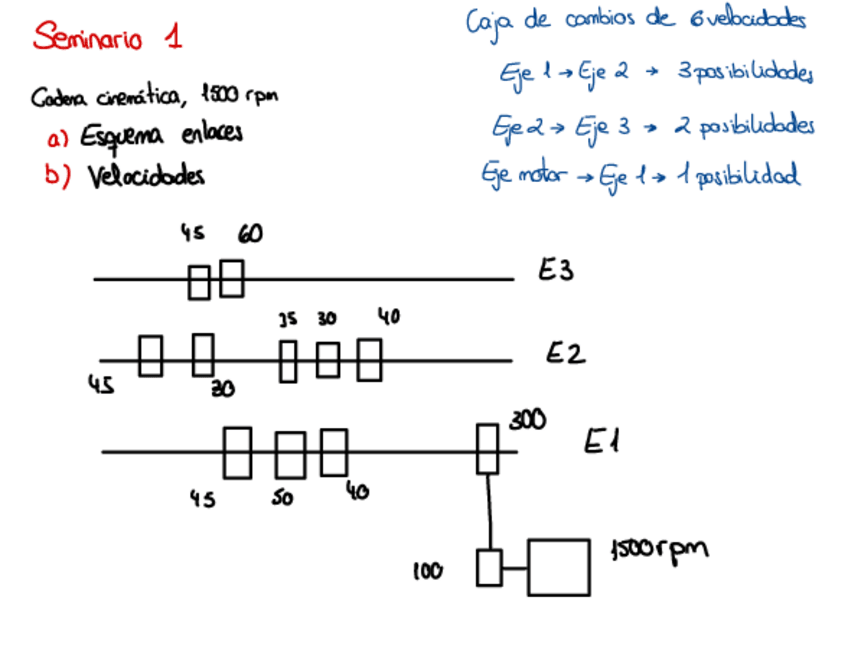 Seminario 1
Cadena cinemática, 1500 rpm
a) Esquema enlaces
b) Velocidades
Caja de cambios de 6 velocidades
Eje 1 → Eje 2 → 3 posibilidades
Eje 2 → Eje 3 → 2 posibilidades
Eje motor → Eje 1 → 1 posibilidad
45 60
E3
35 30 40
E2
45 30
300
E1
45 50 40
100
1500rpm